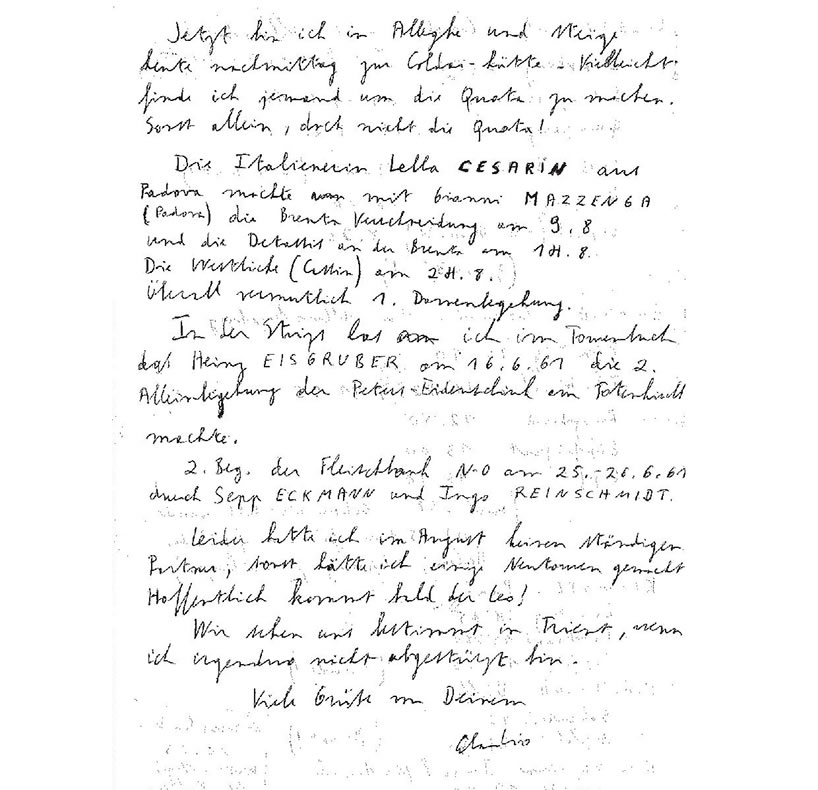 Jetzt bin ich in Alleghe und steige
heute nachmittag zur Coldai-hütte. Vielleicht
finde ich jemand um die Quota zu machen.
Sonst allein, doch nicht die Quota!
Die Italienerin Lella CESARIN aus
Padova machte mit Gianni MAZZENGA
(Padova) die Brenta Verschneidung am 9.8
und die Detassis an der Brenta am 14.8.
Die Westliche am 24.8.
Überall vermutlich 1. Damenbegehung.
In der Strips las ich im Tourenbuch
daß Heinz EISGRUBER am 16.6.61 die 2.
Alleinbegehung der Peters-Eidenschink am Totenkirchl
machte.
2. Beg. der Fleischbank N-O am 25.-26.6.61
durch Sepp ECKMANN und Ingo REINSCHMIDT.
Leider hatte ich im August keinen ständigen
Partner, sonst hätte ich einige Neutouren gemacht
Hoffentlich kommt bald der Leo!
Wir sehen uns bestimmt in Trient, wenn
ich irgendwo nicht abgestürzt bin.
Viele Grüße von Deinem
Claudio